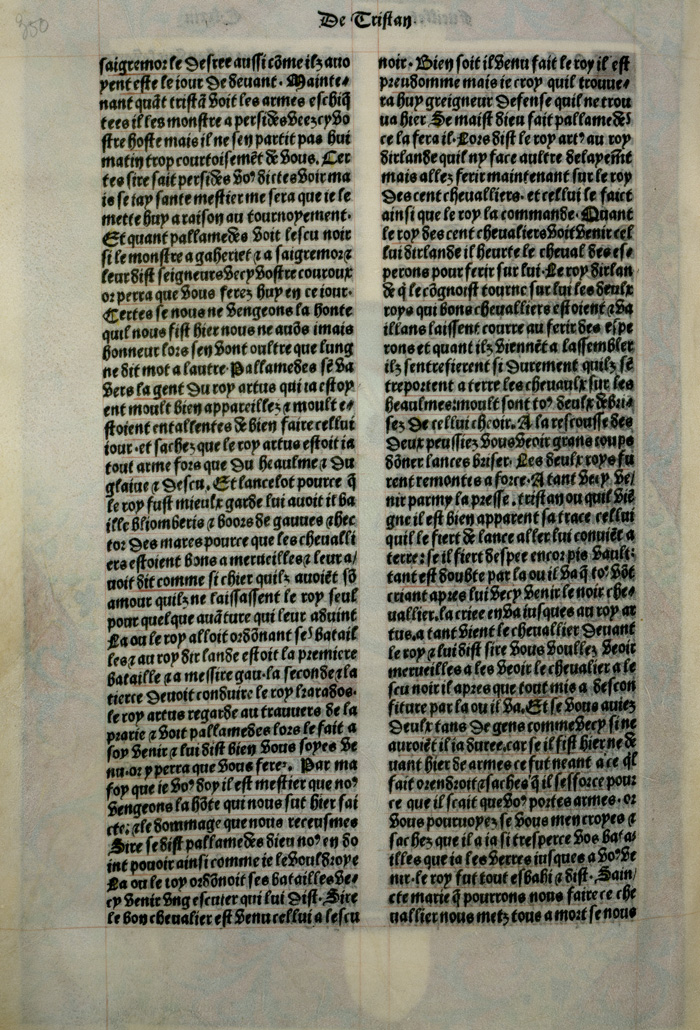 De Tristan.
saigremor le Desree aussi cõme ilz auo
yent este le iour De deuant. Mainte⸗
nant quãt tristã voit les armes eschiq̃
tees il les monstre a persides veez cy vo
stre hoste mais il ne sen partit pas hui
matin trop courtoisemẽt de vous. Cer
tes sire fait persides voꝰ dictes voir ma
is se iay sante mestier me sera que ie le
mette huy a raison au tournoyement.
Et quant pallamedes voit lescu noir
si le monstre a gaheriet ⁊ a saigremor ⁊
leur dist seigneurs vecy vostre couroux
or perra que vous ferez huy en ce iour.
Certes se nous ne vengeons la honte
quil nous fist hier nous ne auõs imais
honneur lors sen vont oultre que lung
ne dit mot a lautre Pallamedes sẽ va
vers la gent Du roy artus qui ia estoy
ent moult bien appareillez ⁊ moult e⸗
stoient entallentes de bien faire cellui
iour. et sachez que le roy artus estoit ia
tout arme fors que Du heaulme ⁊ Du
glaiue ⁊ Descu. Et lancelot pource q̃
le roy fust mieulx garde lui auoit il ba
ille bliomberis ⁊ boors de gauues ⁊ hec
tor Des mares pource que les cheualli
ers estoient bons a merueilles ⁊ leur a/
uoit dit comme si chier quilz auoiẽt sõ
amour quilz ne laissassent le roy seul
pour quelque auãture qui leur aduint
La ou le roy alloit ordõnant seˢ batail
les ⁊ au roy dirlande estoit la premiere
bataille ⁊ a messire gau. la seconde ⁊ la
tierce Deuoit conduire le roy karados.
le roy artus regarde au trauers de la
prarie ⁊ voit pallamedes lors le fait a
soy venir ⁊ lui dist bien vous soyes ve
nu. or y perra que vous ferez. Par ma
foy que ie voꝰ doy il est mestier que noꝰ
vengeons la hõte qui nous fut hier fai
cte: ⁊ le dommage que nous receusmes
Sire se dist pallamedes dieu noꝰ en do
int pouoir ainsi comme ie le vouldroye
La ou le roy ordõnoit ses batailles ve⸗
cy venir vng escuier qui lui Dist. Sire
le bon cheualier est venu cellui a lescu
noir. Bien soit il venu fait le roy il est
preudomme mais ie croy quil trouue⸗
ra huy greigneur Defense quil ne trou
ua hier Se maist dieu fait pallamedeˢ
ce la fera il. Lors dist le roy artꝰ au roy
dirlande quil ny face aultre delayemẽt
mais allez ferir maintenant sur le roy
Des cent cheualliers. et cellui le faict
ainsi que le roy la commande. Quant
le roy des cent cheualiers voit venir cel
lui dirlande il heurte le cheual des es⸗
perons pour ferir sur lui. Le roy dirlan
de q̃ le cõgnoist tourne sur lui les deulx
roys qui bons cheualliers estoient ⁊ va
illans laissent courre au ferir des espe
rons et quant ilz viennẽt a lassembler
ilz sentrefierent si Durement quilz sẽ
treportent a terre les cheuaulx sur les
heaulmes: moult sont toꝰ deulx debri⸗
sez De cellui cheoir. A la rescousse des
Deux peussiez vous veoir grans coups
dõner lances briser. Les deulx roys fu
rent remontes a force. A tant vecy ve/
nir parmy la presse. tristan ou quil viẽ
gne il est bien apparent sa trace cellui
quil le fiert de lance aller lui conuiẽt a
terre: se il fiert despee encor pis vault:
tant est doubte par la ou il va q̃ toꝰ võt
criant apres lui vecy venir le noir che⸗
uallier. la criee en va iusques au roy ar
tus. a tant vient le cheuallier Deuant
le roy ⁊ lui dist sire vous voullez veoir
merueilles a les veoir le cheualier a le
scu noir il apres que tout mis a descon
fiture par la ou il va. Et se vous auiez
Deulx tans De gens comme vecy si ne
auroiẽt il ia duree. car se il fist hier ne de
uant hier de armes ce fut neant a ce q̃l
fait orendroit ⁊ saches q̃ il sefforce pour
ce que il scait que voꝰ portes armes. or
vous pouruoyez se vous men croyes ⁊
sachez que il a ia si tresperce vos bata⸗
illes que ia les verres iusques a voꝰ ve
nir. le roy fut tout esbahi ⁊ dist. Sain/
cte marie q̃ pourrons nous faire ce che
uallier nous metz tous a mort se nous